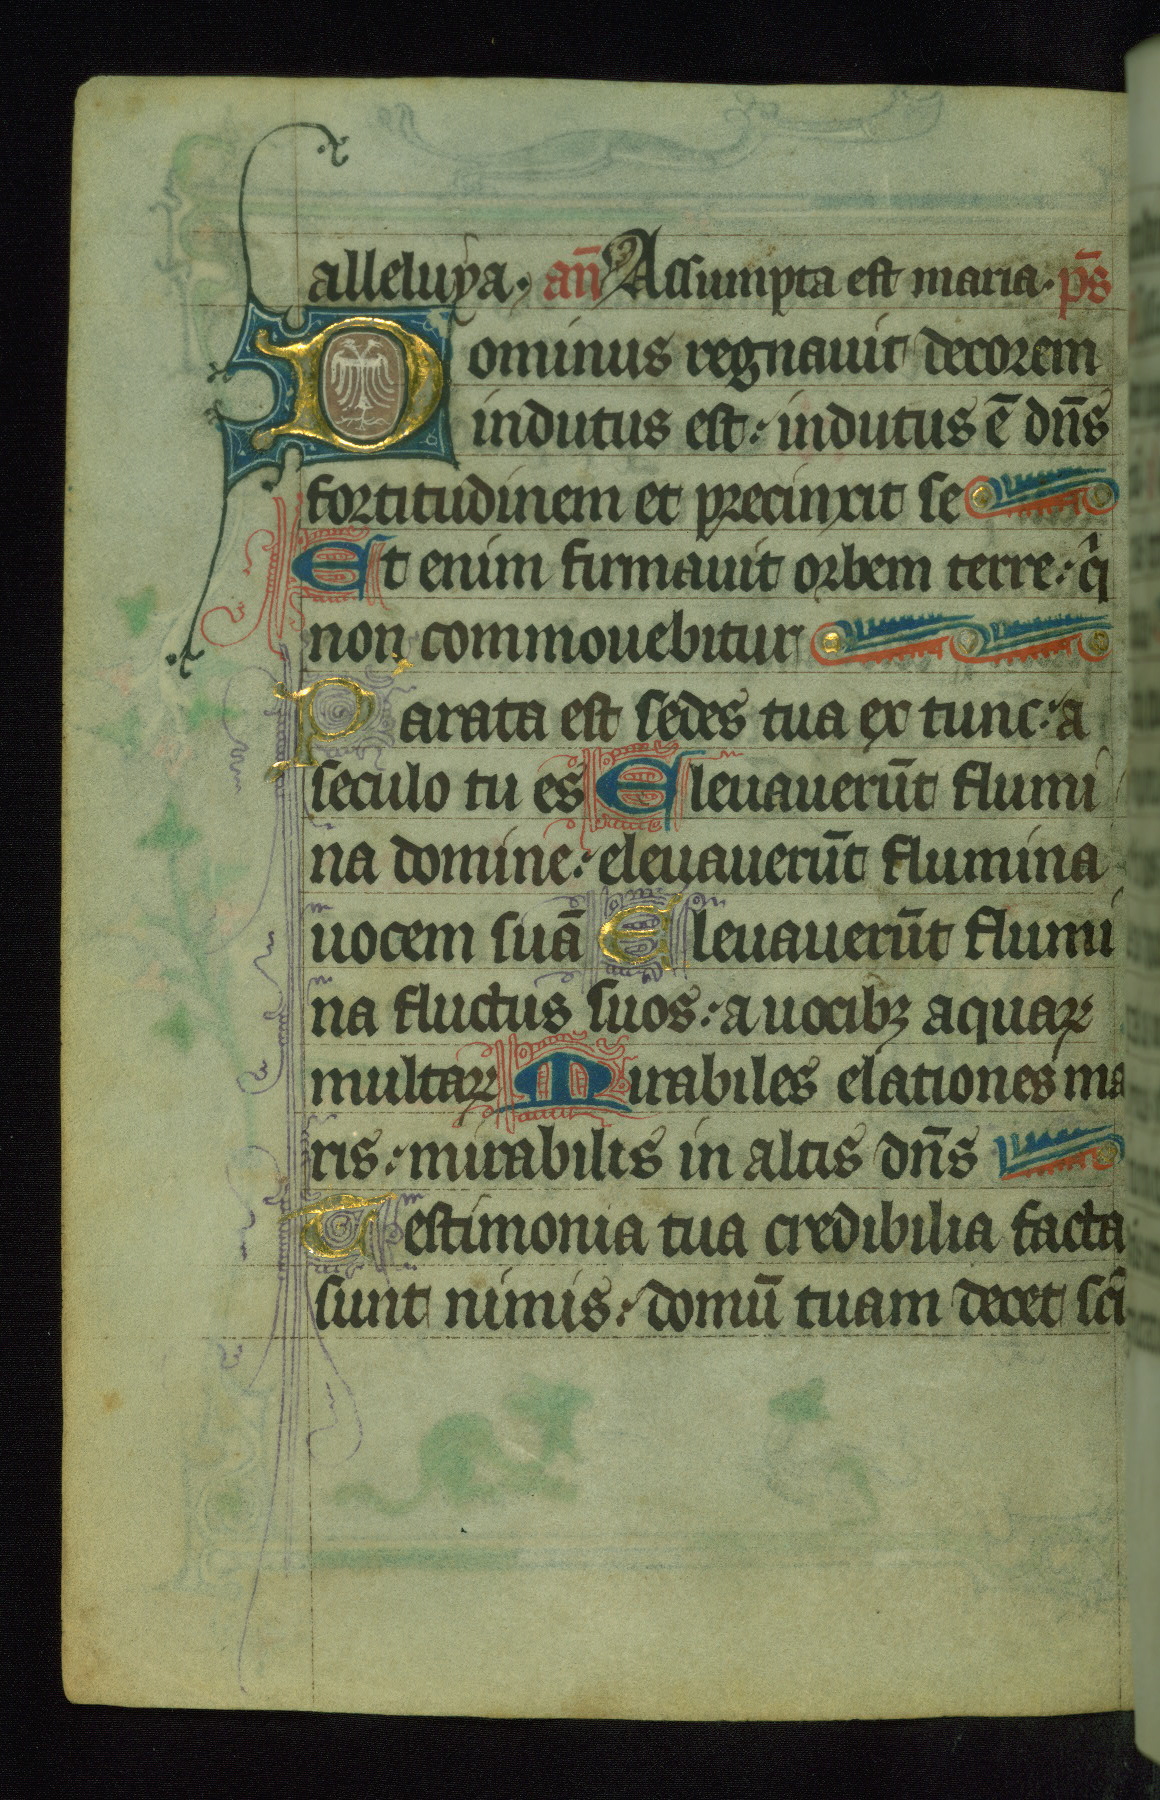 alleluya. an̄ Assumpta est maria. ps̄
Dominus regnauit decorem
indutus est: indutus ē dn̄s
fortitudinem et precinxit se
Et enim firmauit orbem terre: qͥ
non commouebitur
Parata est sedes tua ex tunc: a
seculo tu es Eleuauerūt flumi
na domine: eleuauerūt flumina
uocem suā Eleuauerūt flumi
na fluctus suos: a uocibꝫ aquaꝝ
multaꝝ Mirabiles elationes ma
ris: mirabilis in altis dn̄s
Testimonia tua credibilia facta
sunt nimis: domū tuam decet sci̅